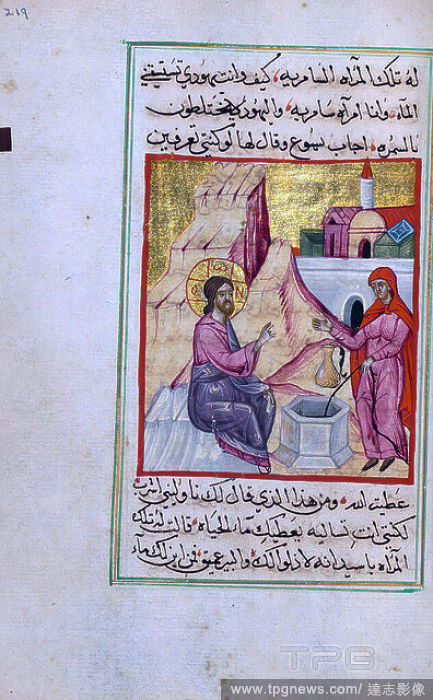 219
له تلك المرآه السامريه، كيف وانت يهودي تستسقي
المآء وانا امرآه سامريه، واليهود يختلطون
بالسمره، اجاب يسوع وقال لها لو كنتي تعرفين
عطية الله، ومن هذا الذي قال لك ناوليني اشرب
لكنتي انت تساليه يعطيك مآء الحياه، قالت له تلك
المرآه ياسيد انه لا دلو لك، والبير عميق، فمن اين لك مآء
TPG
www.tpgnews.com / 達志影像